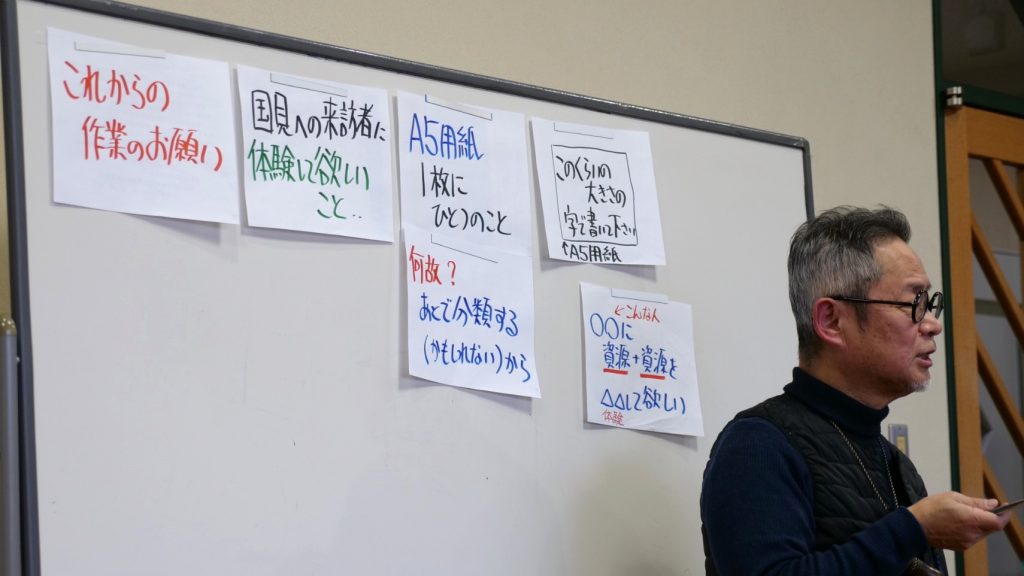 これからの
作業のお願い
国見への来訪者に
体験して欲しい
こと..
A5用紙
1枚に
ひとつのこと
何故?
あとで分類する
(かもしれない)から
このくらいの
大きさの
字で書いて下さい
↑A5用紙
←こんな人
〇〇に
資源+資源を
△△して欲しい
体験